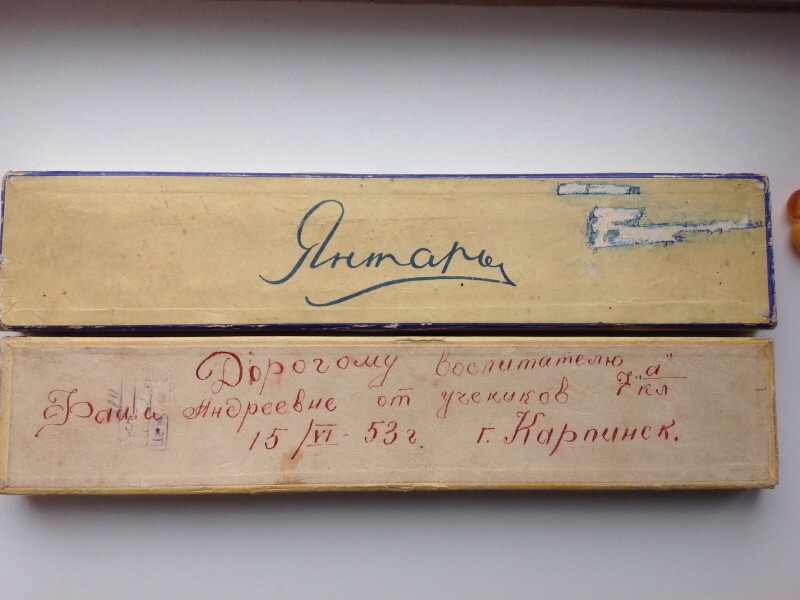 Янтарь
Дорогому воспитателю
Фаине Андреевне от учеников 7"а" кл
15/VI - 53г. г. Карпинск.